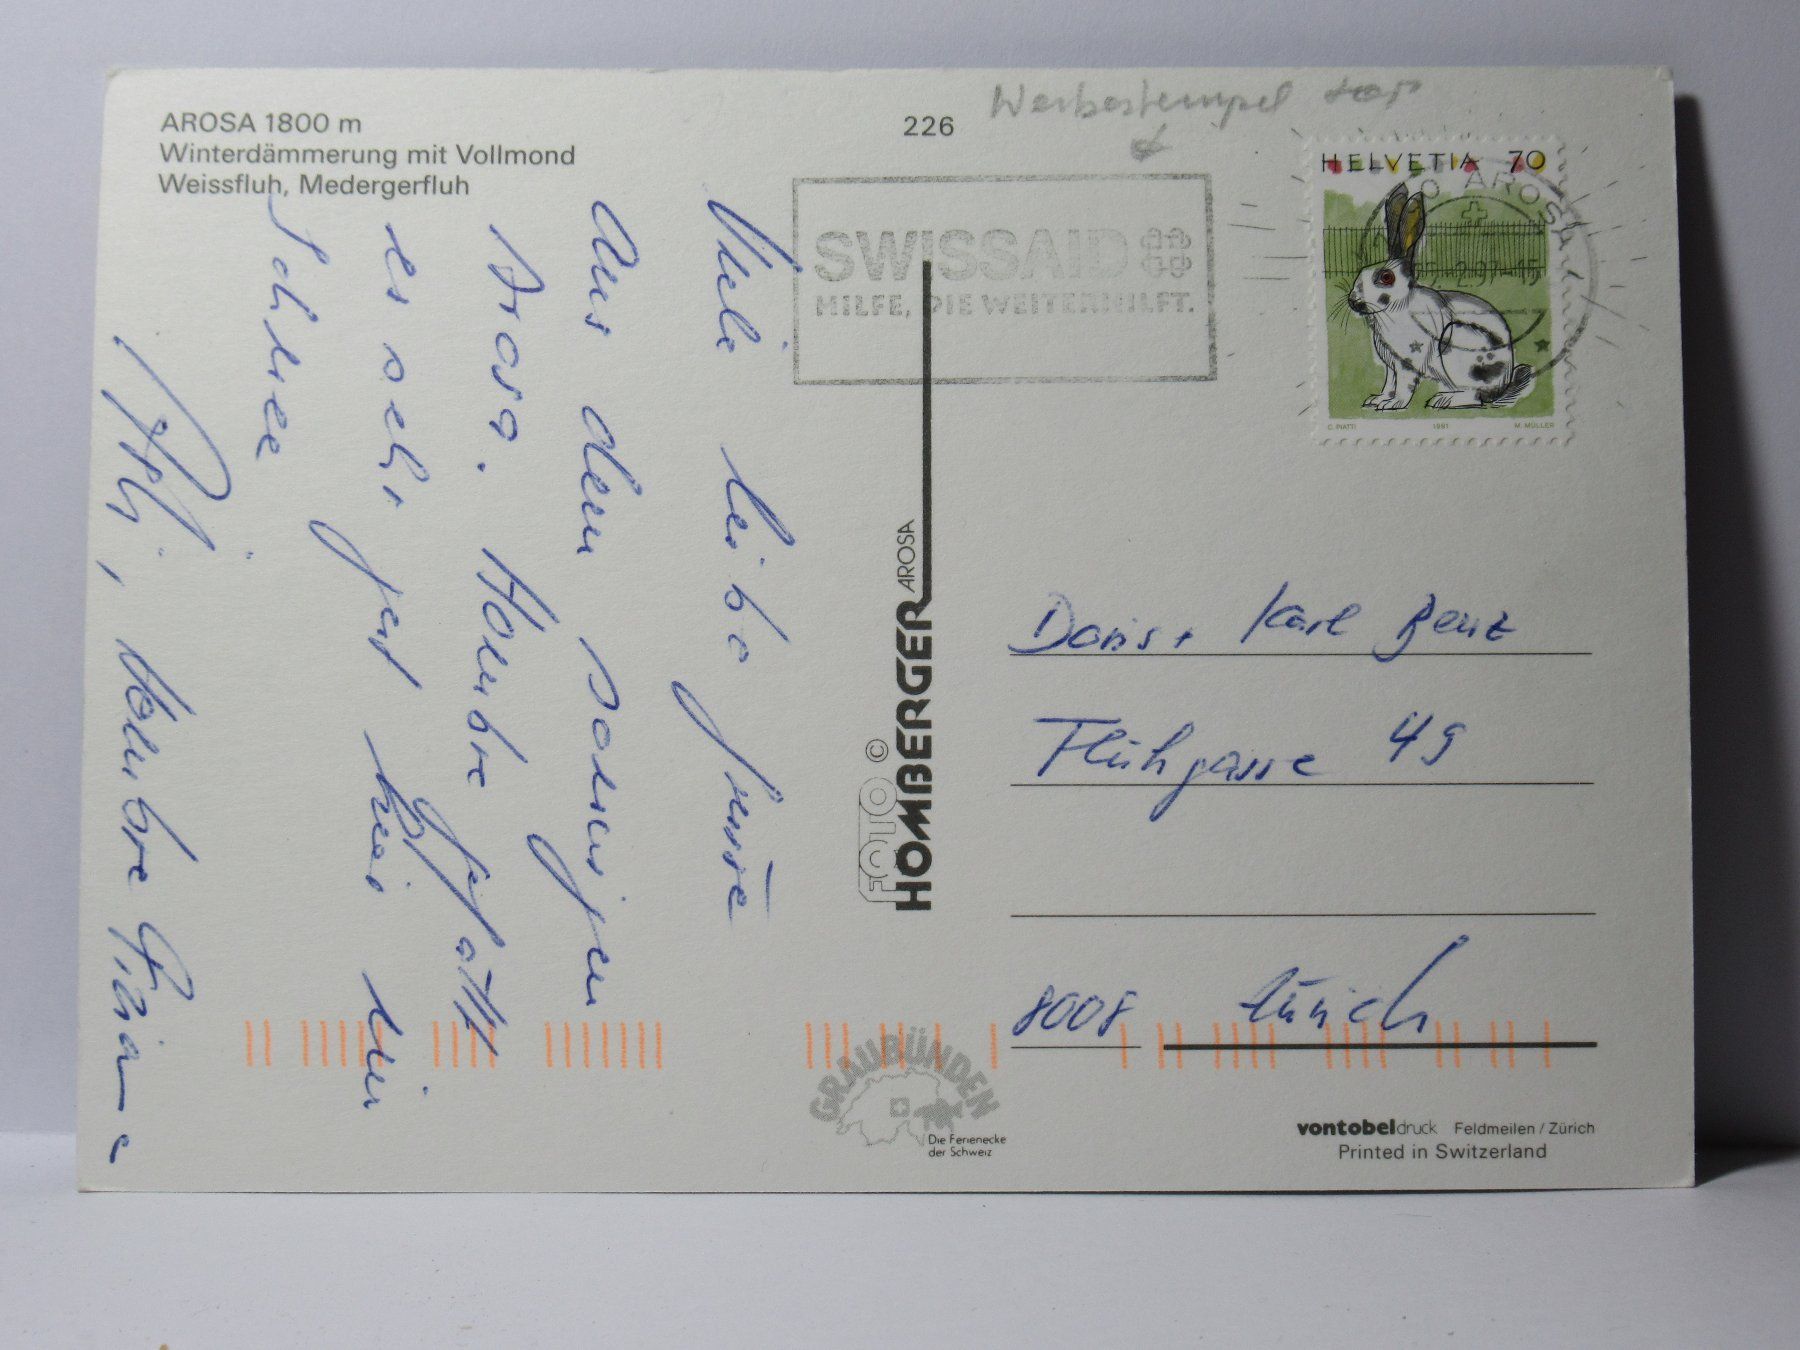 AROSA 1800 m
Winterdämmerung mit Vollmond
Weissfluh, Medergerfluh
226
Werbestempel
SWISSAID
HILFE, DIE WEITERHILFT.
HELVETIA 70
AROSA
2.97-15
C. PIATTI 1991 M. MÜLLER
Viele liebe Grüsse
Aus dem sonnigen
Arosa.
es sehr gut hier im
Schnee
FOTO © HOMBERGER AROSA
Doris + Karl Benz
Flühgasse 49
8008 Zürich
GRAUBÜNDEN
Die Ferienecke
der Schweiz
vontobeldruck Feldmeilen / Zürich
Printed in Switzerland